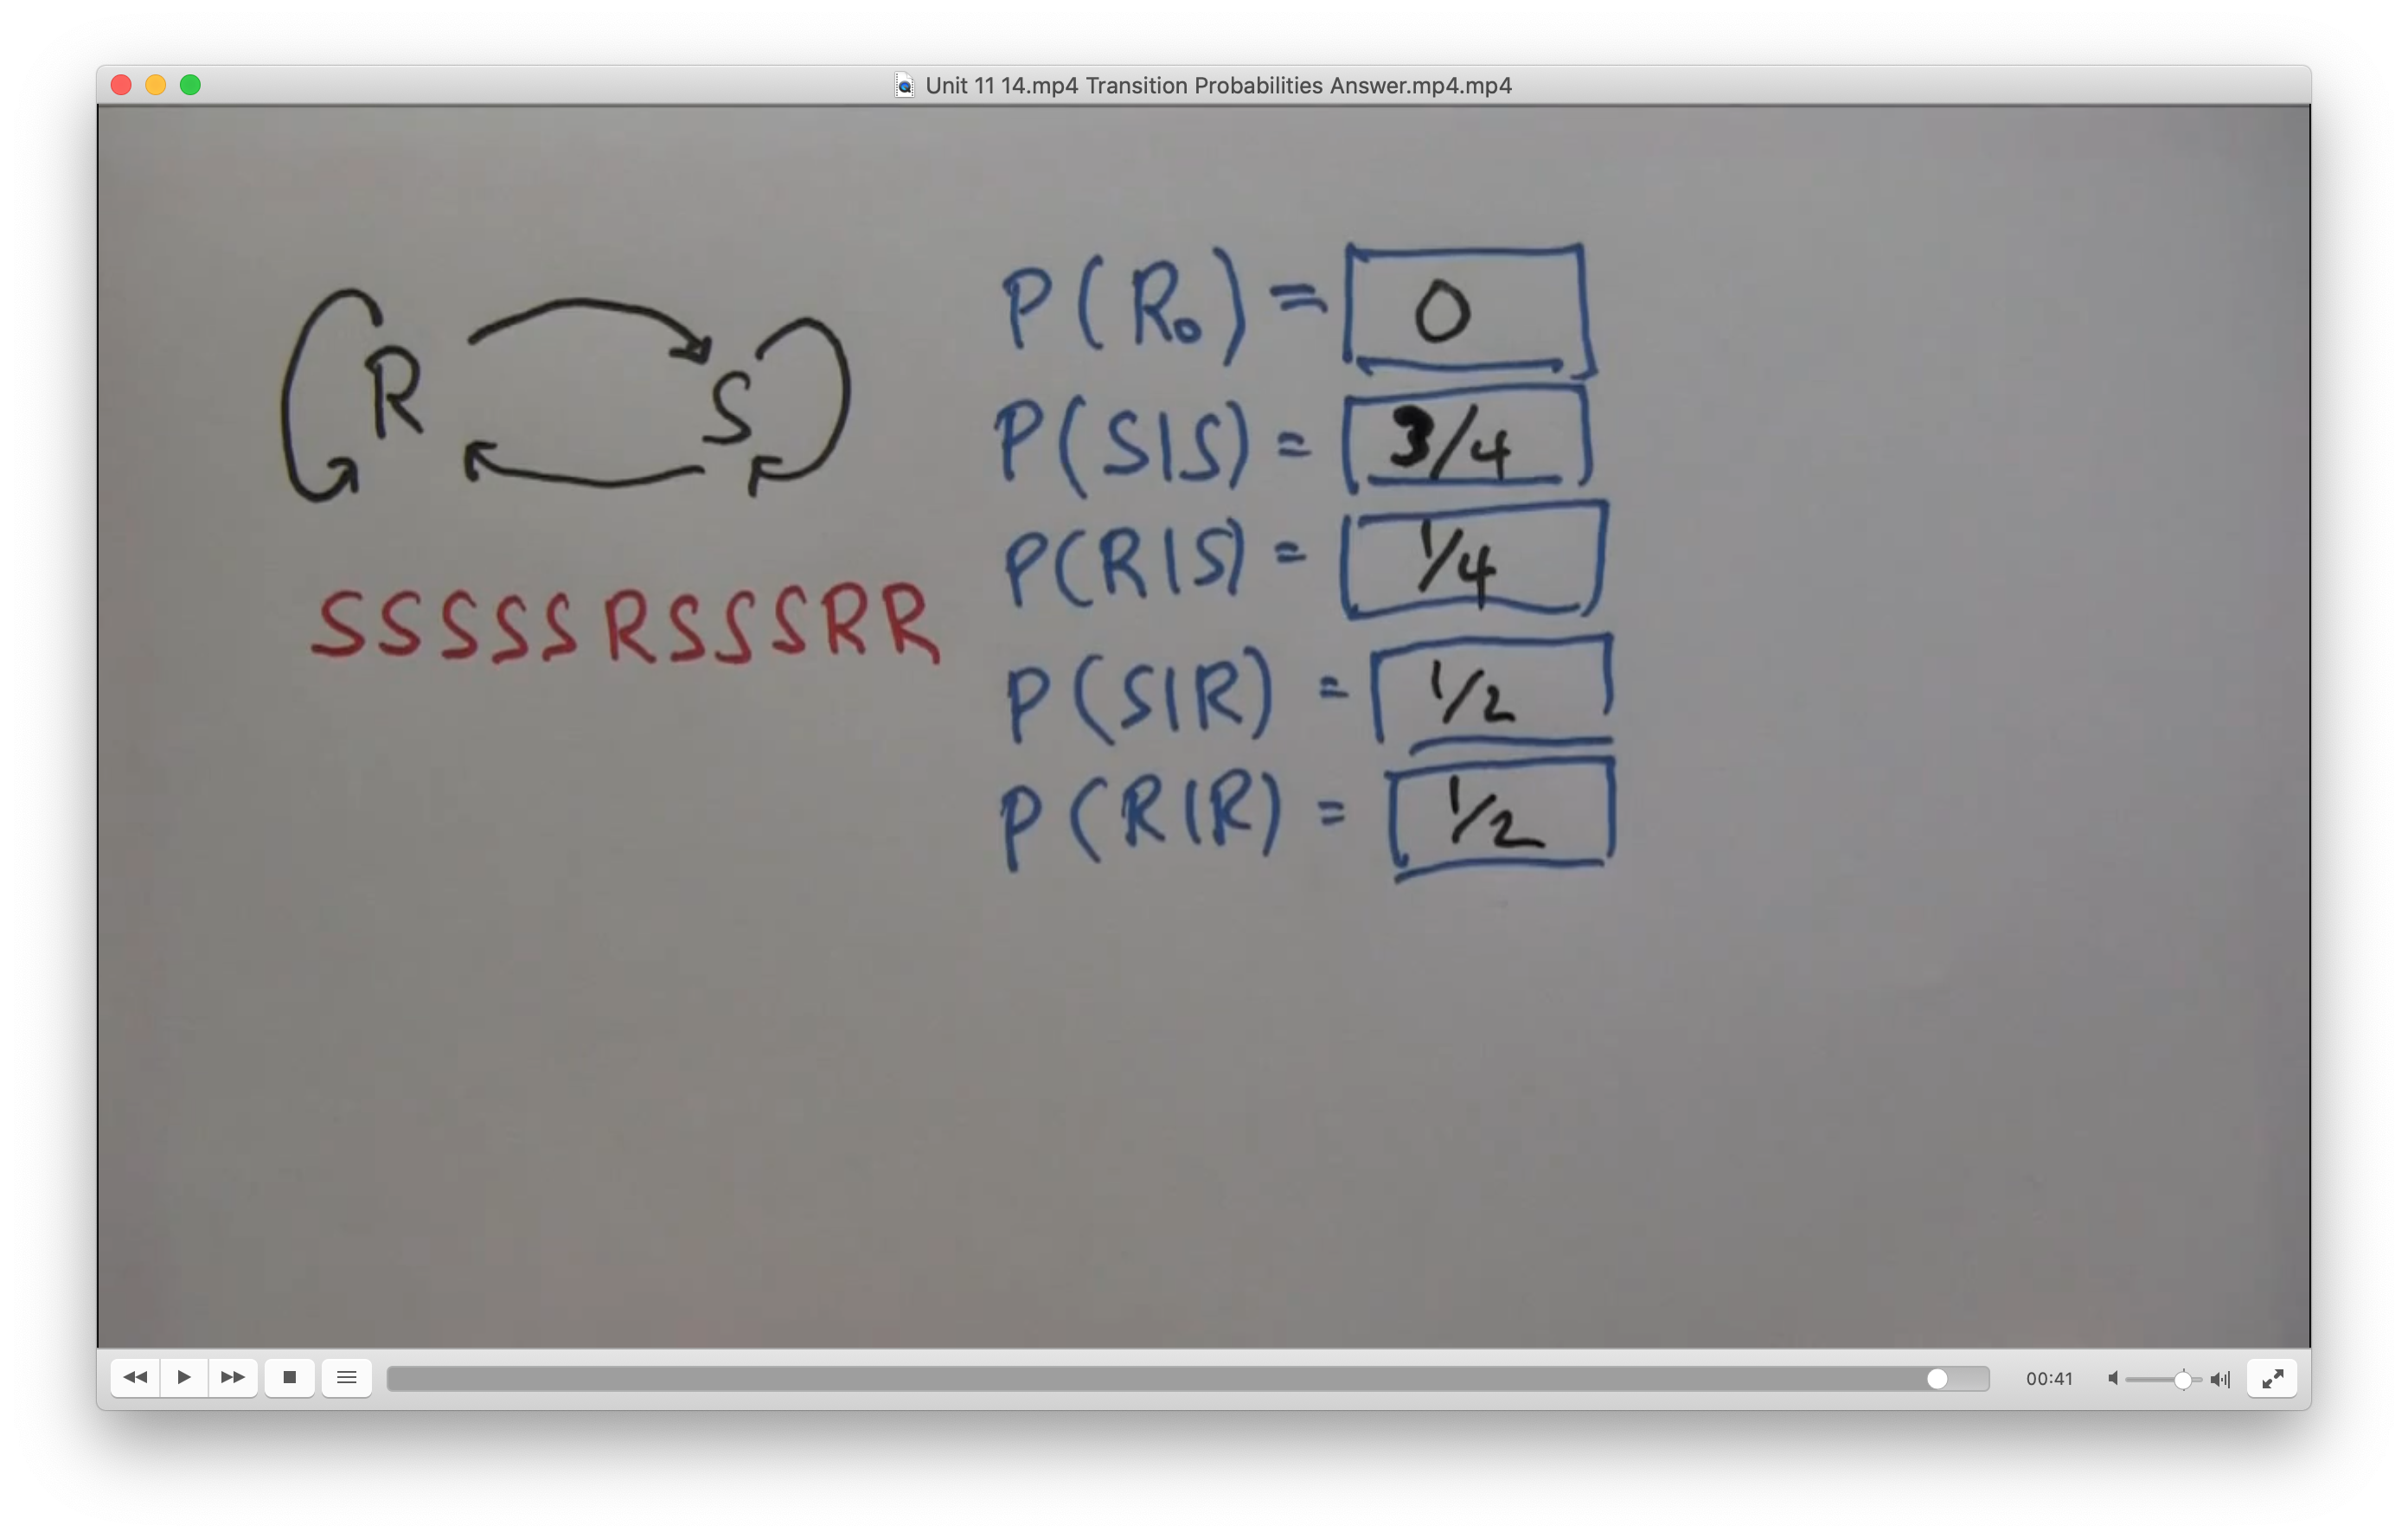 Unit 11 14.mp4 Transition Probabilities Answer.mp4.mp4
R S
SSSSSRSSSRR
P(R₀) = 0
P(S|S) = 3/4
P(R|S) = 1/4
P(S|R) = 1/2
P(R|R) = 1/2
00:41